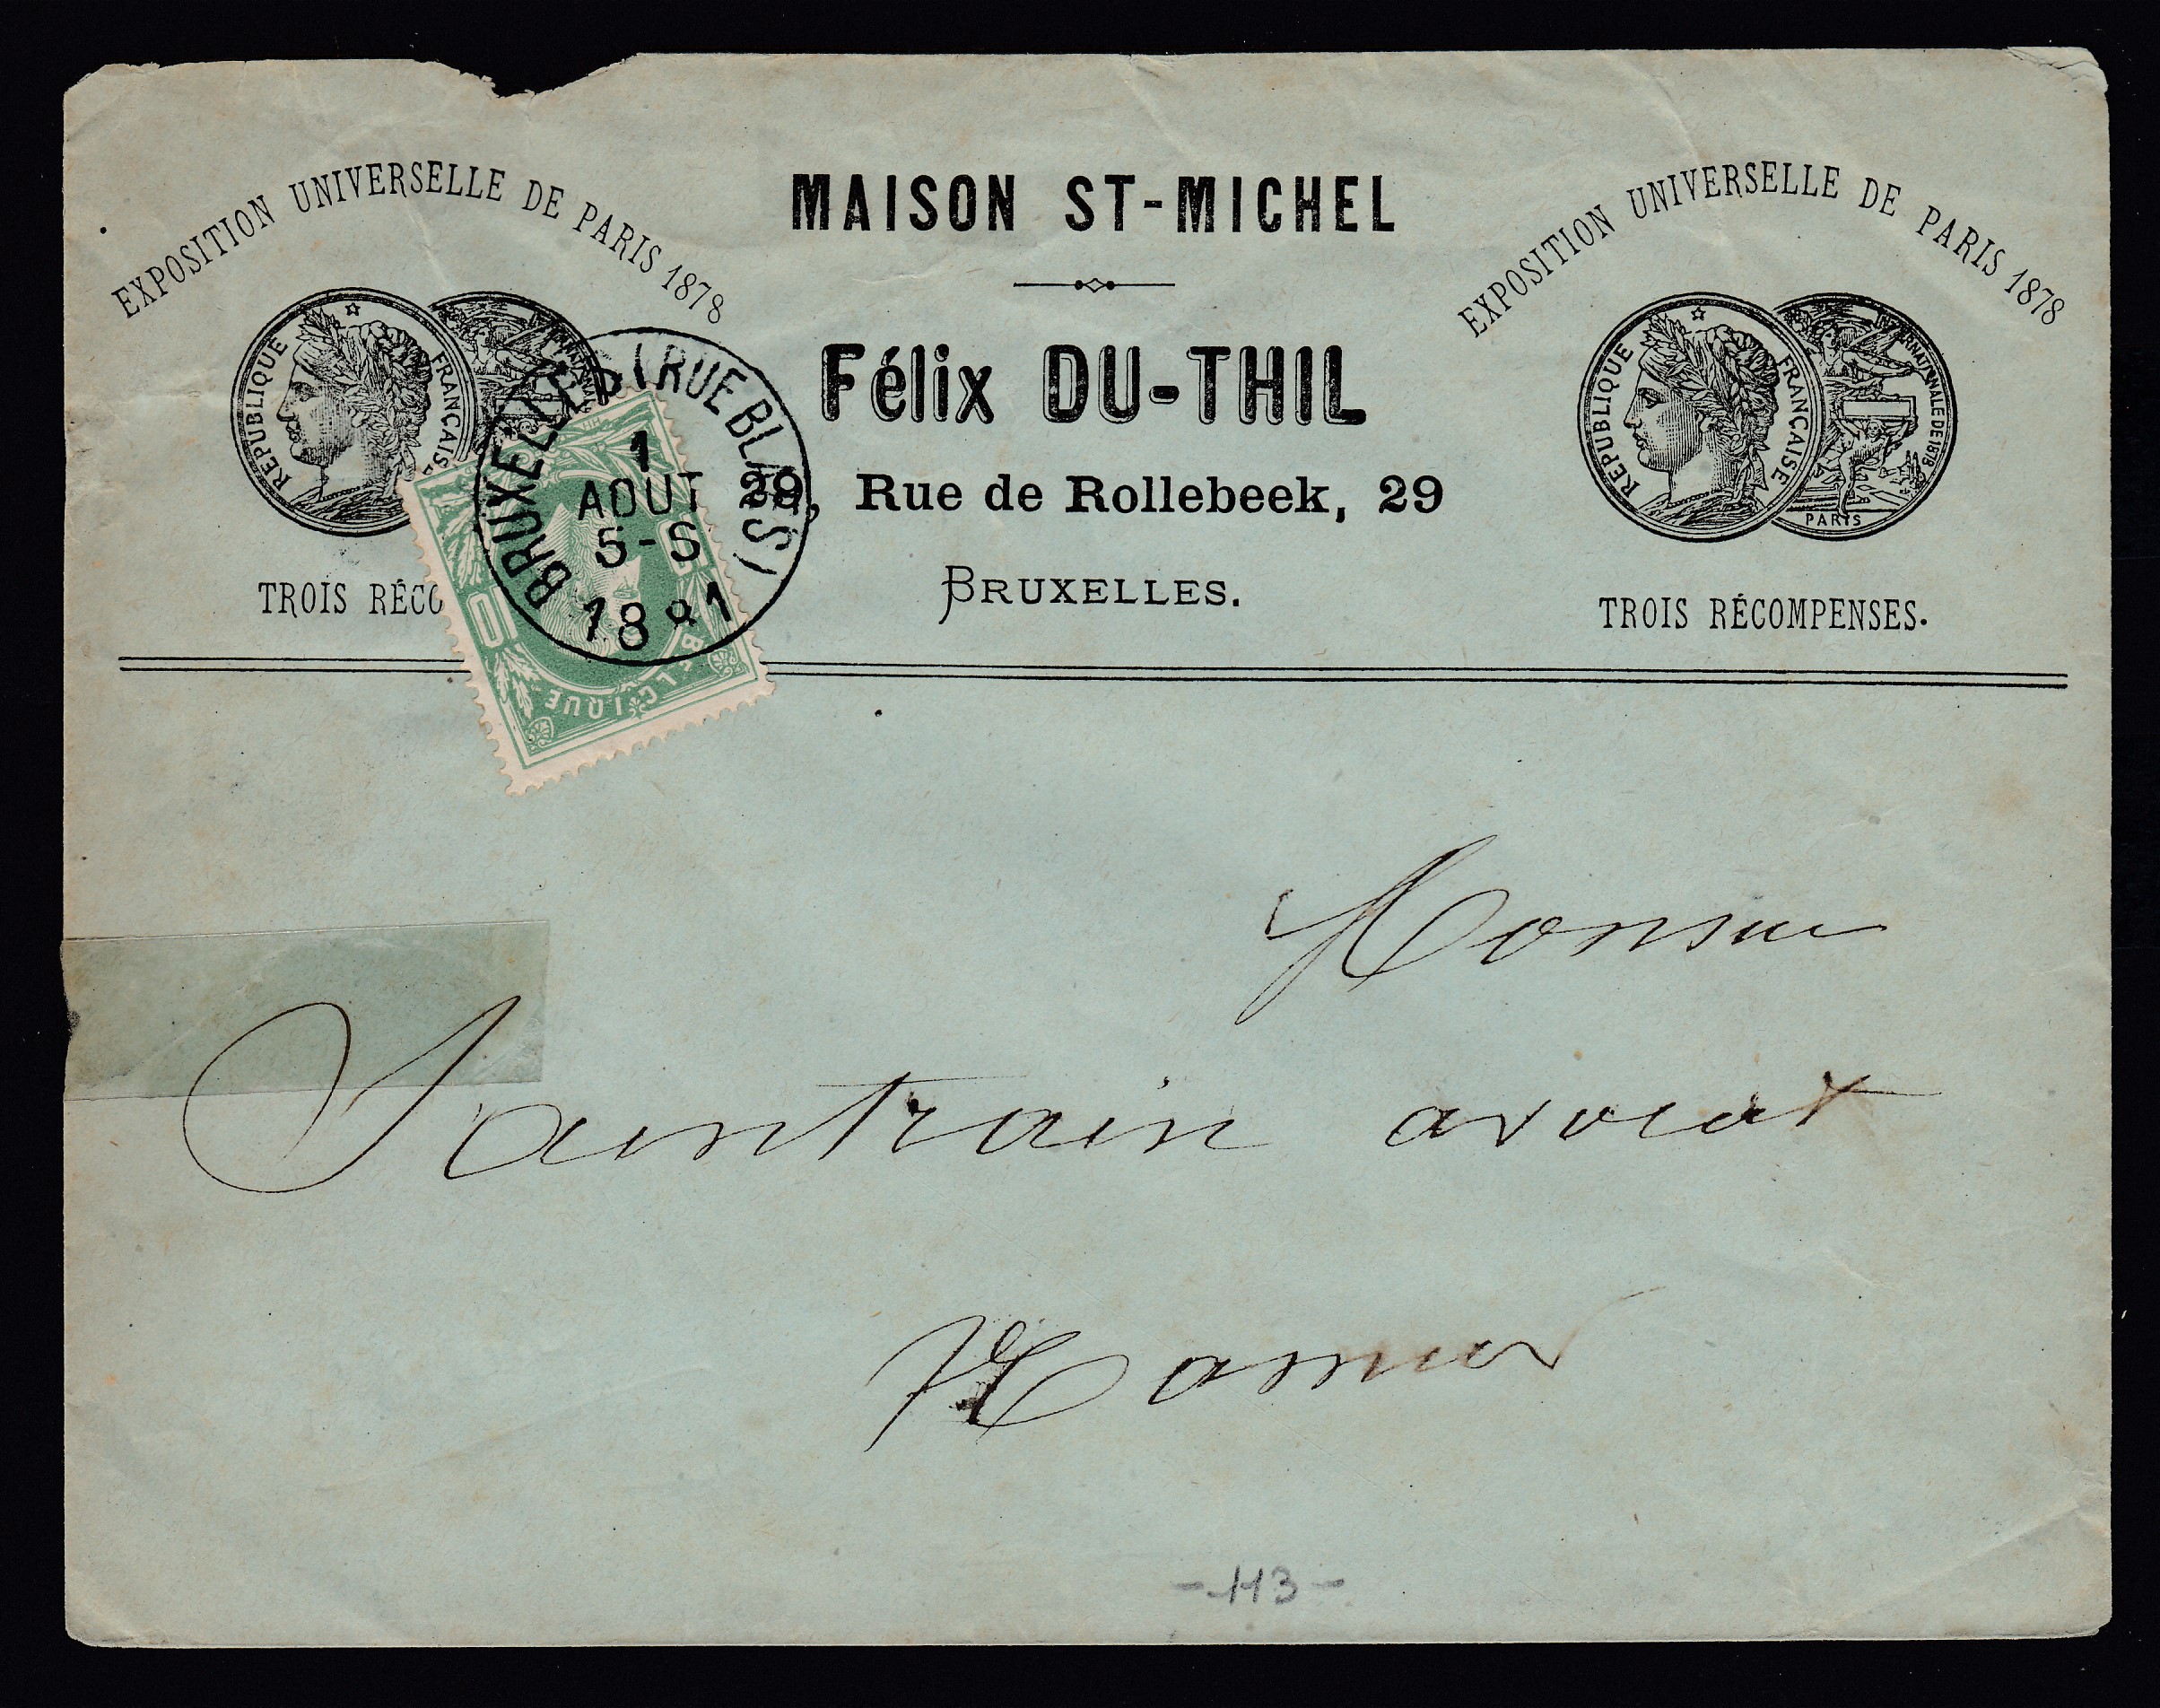 EXPOSITION UNIVERSELLE DE PARIS 1878
RÉPUBLIQUE FRANÇAISE
TROIS RÉCO
MAISON ST-MICHEL
Félix DU-THIL
29, Rue de Rollebeek, 29
BRUXELLES.
EXPOSITION UNIVERSELLE DE PARIS 1878
RÉPUBLIQUE FRANÇAISE
PARIS
TROIS RÉCOMPENSES.
BRUXELLES (RUE BLAES)
1
AOUT
5-S
1881
BELGIQUE
Monsieur
Saintrain avocat
Namur
-113-